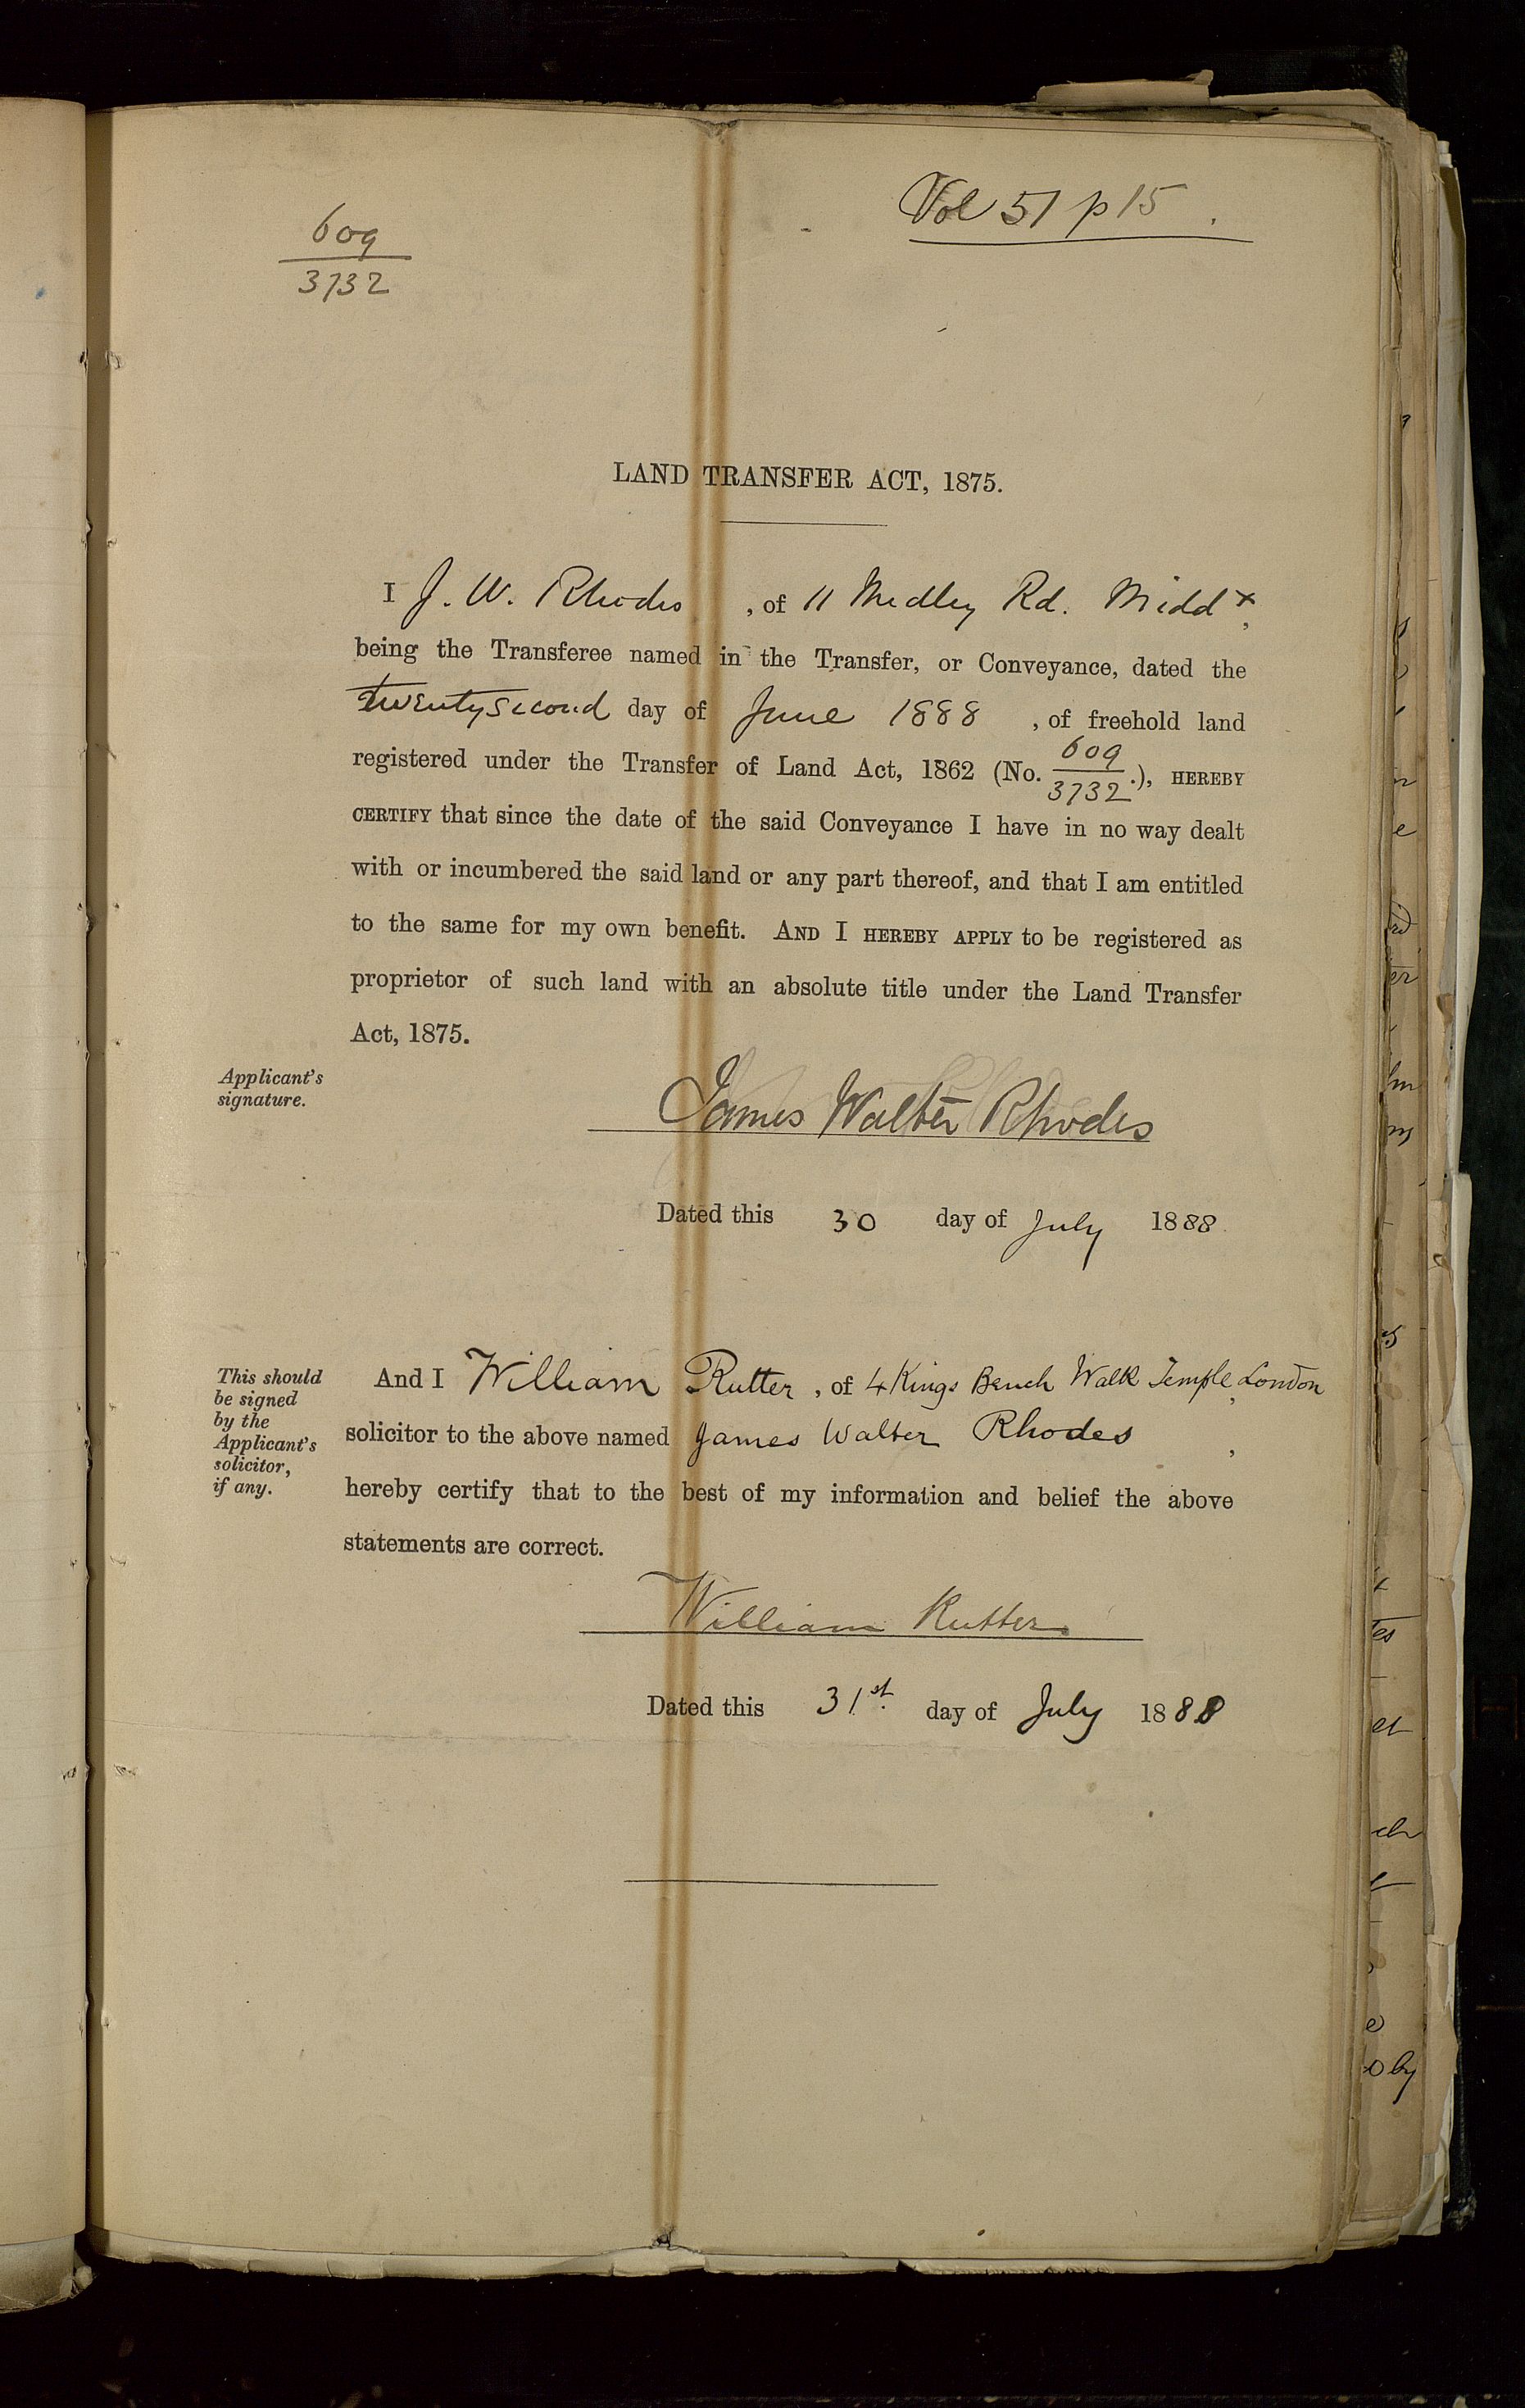 609
3732
Vol 51 p 15
LAND TRANSFER ACT, 1875.
I J. W. Rhodes, of 11 Medley Rd. Middx,
being the Transferee named in the Transfer, or Conveyance, dated the
twenty second day of June 1888, of freehold land
registered under the Transfer of Land Act, 1862 (No. 609/3732.), HEREBY
CERTIFY that since the date of the said Conveyance I have in no way dealt
with or incumbered the said land or any part thereof, and that I am entitled
to the same for my own benefit. AND I HEREBY APPLY to be registered as
proprietor of such land with an absolute title under the Land Transfer
Act, 1875.
Applicant's
signature.
James Walter Rhodes
Dated this 30 day of July 1888
This should
be signed
by the
Applicant's
solicitor,
if any.
And I William Rutter, of 4 Kings Bench Walk Temple, London
solicitor to the above named James Walter Rhodes,
hereby certify that to the best of my information and belief the above
statements are correct.
William Rutter
Dated this 31st. day of July 1888